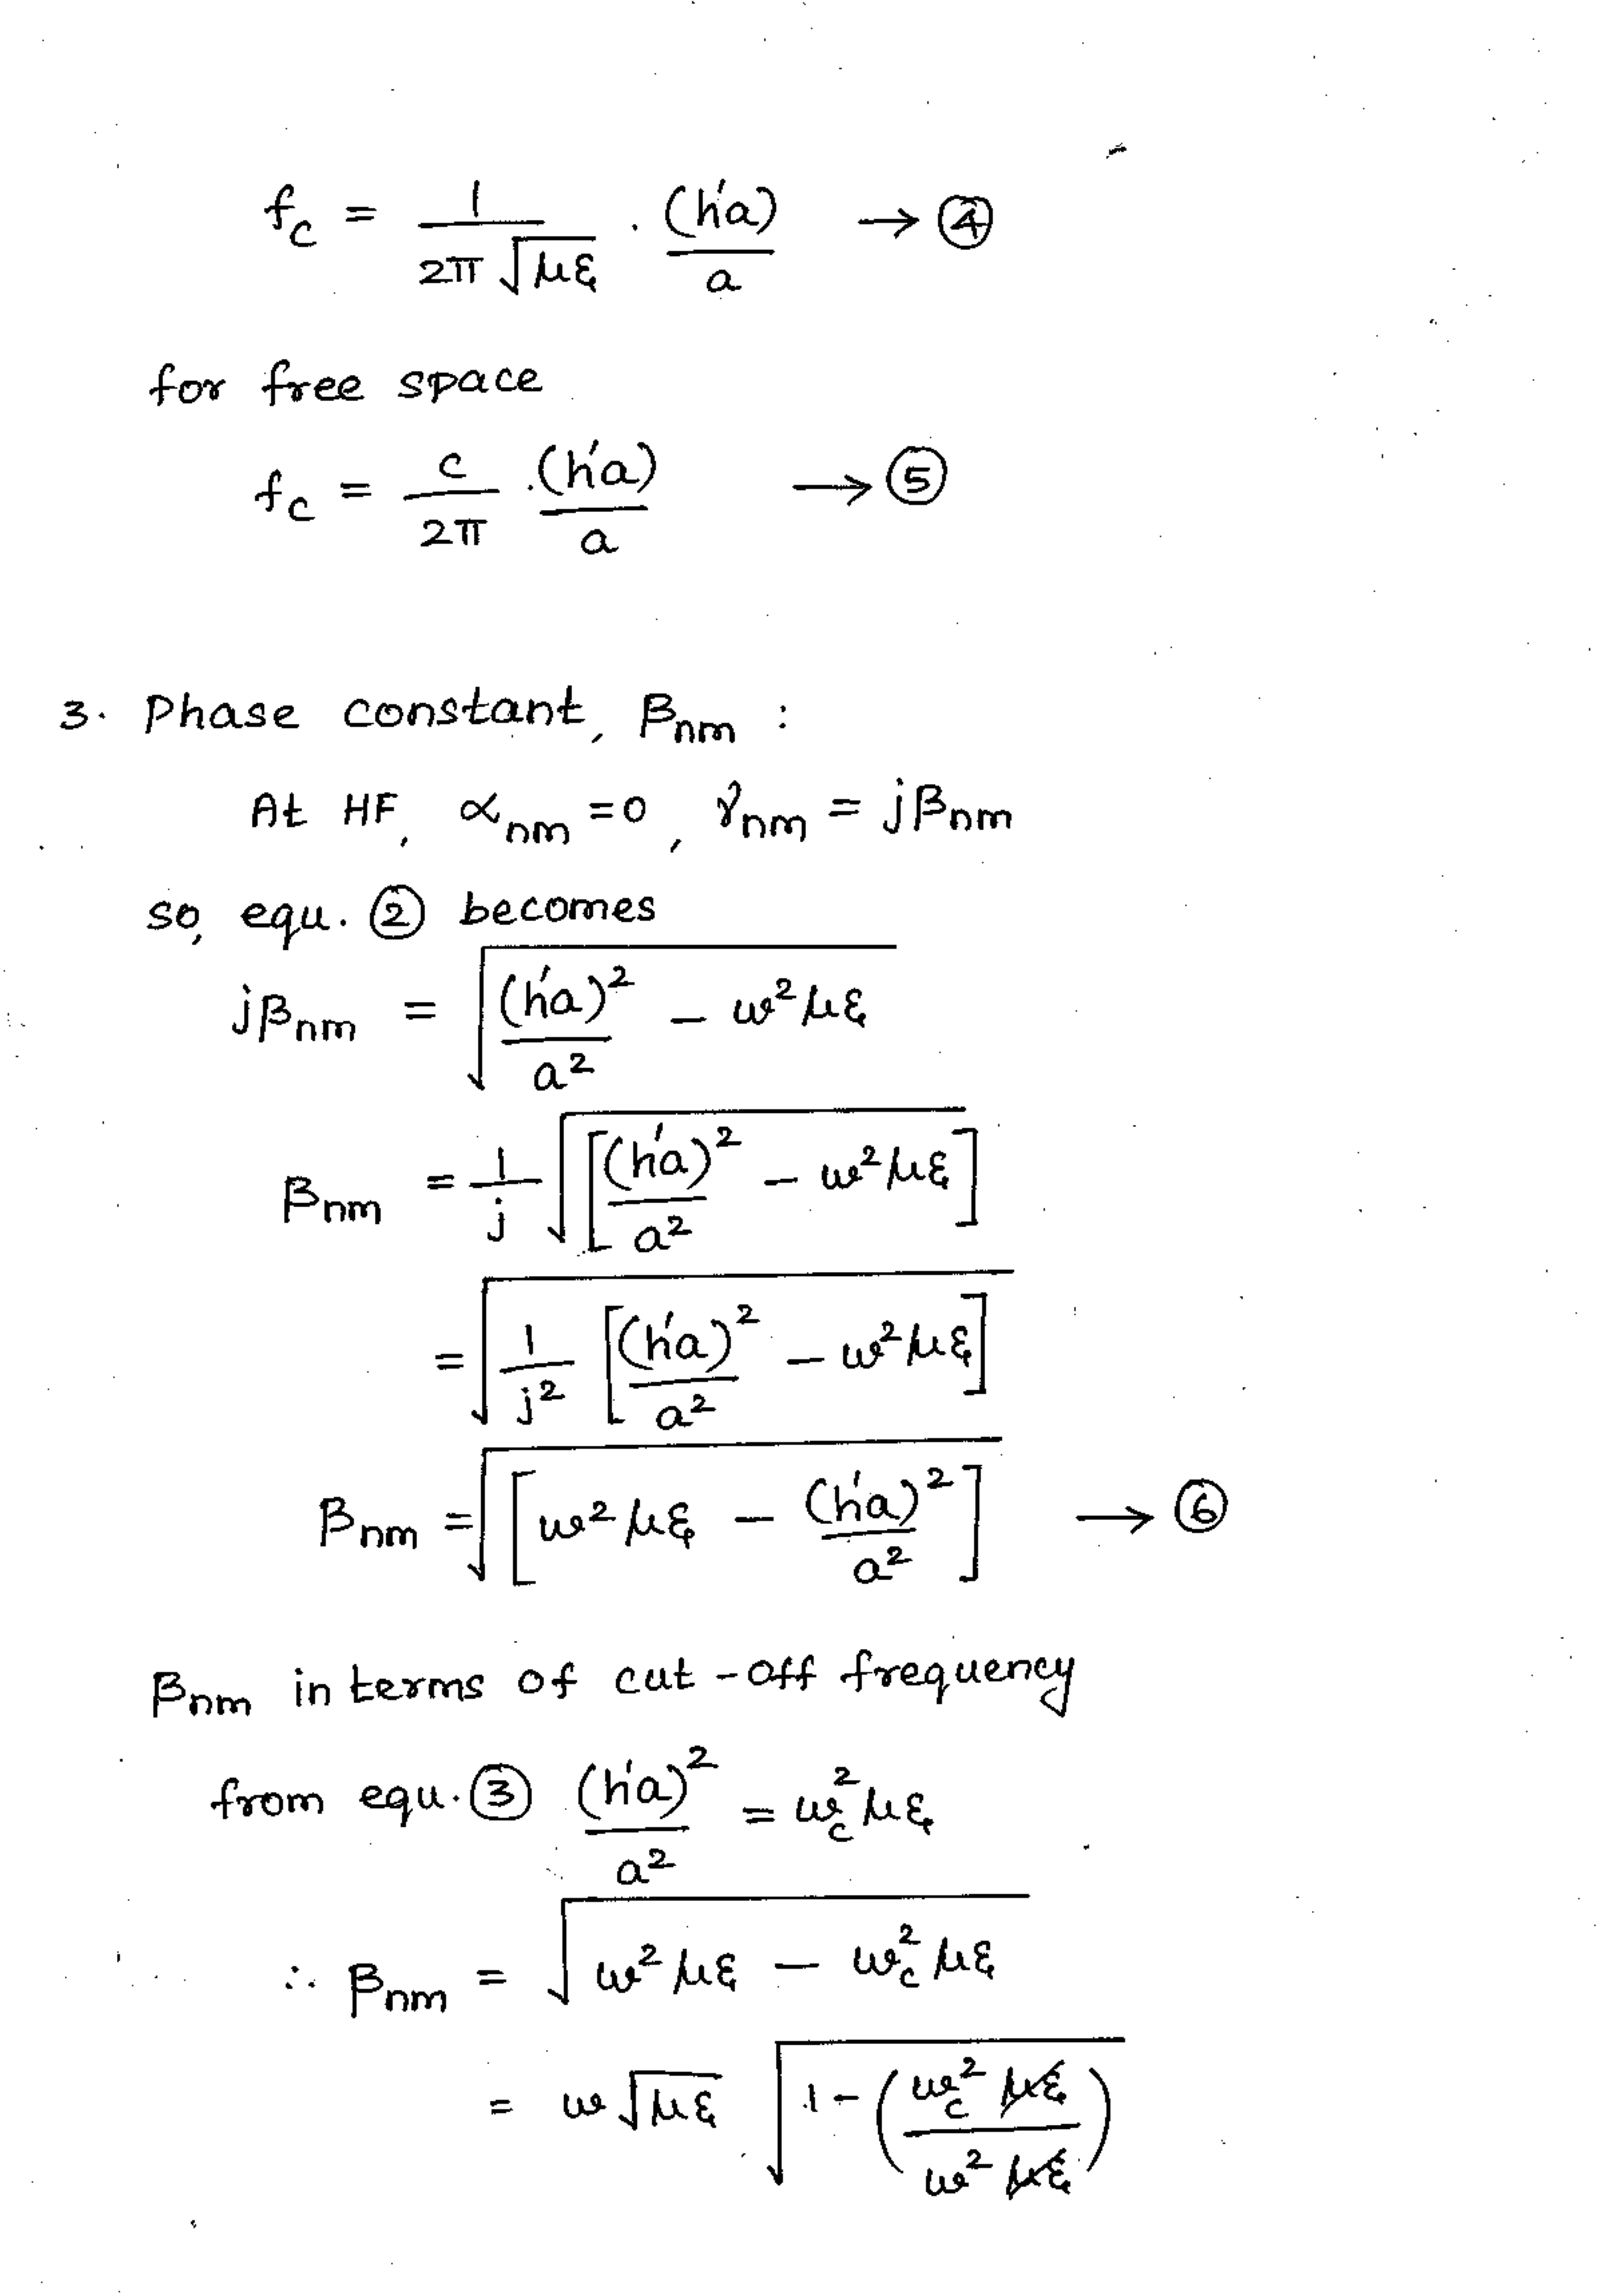 f_c = 1/(2π√(με)) · (h'a)/a → ④
for free space
f_c = c/2π · (h'a)/a → ⑤
3. Phase constant, β_nm :
At HF, α_nm = 0, γ_nm = jβ_nm
so, equ. ② becomes
jβ_nm = √((h'a)²/a² − ω²με)
β_nm = 1/j √[(h'a)²/a² − ω²με]
= √(1/j² [(h'a)²/a² − ω²με])
β_nm = √[ω²με − (h'a)²/a²] → ⑥
β_nm in terms of cut-off frequency
from equ. ③ (h'a)²/a² = ω_c²με
∴ β_nm = √(ω²με − ω_c²με)
= ω√(με) √(1 − (ω_c²με/ω²με))